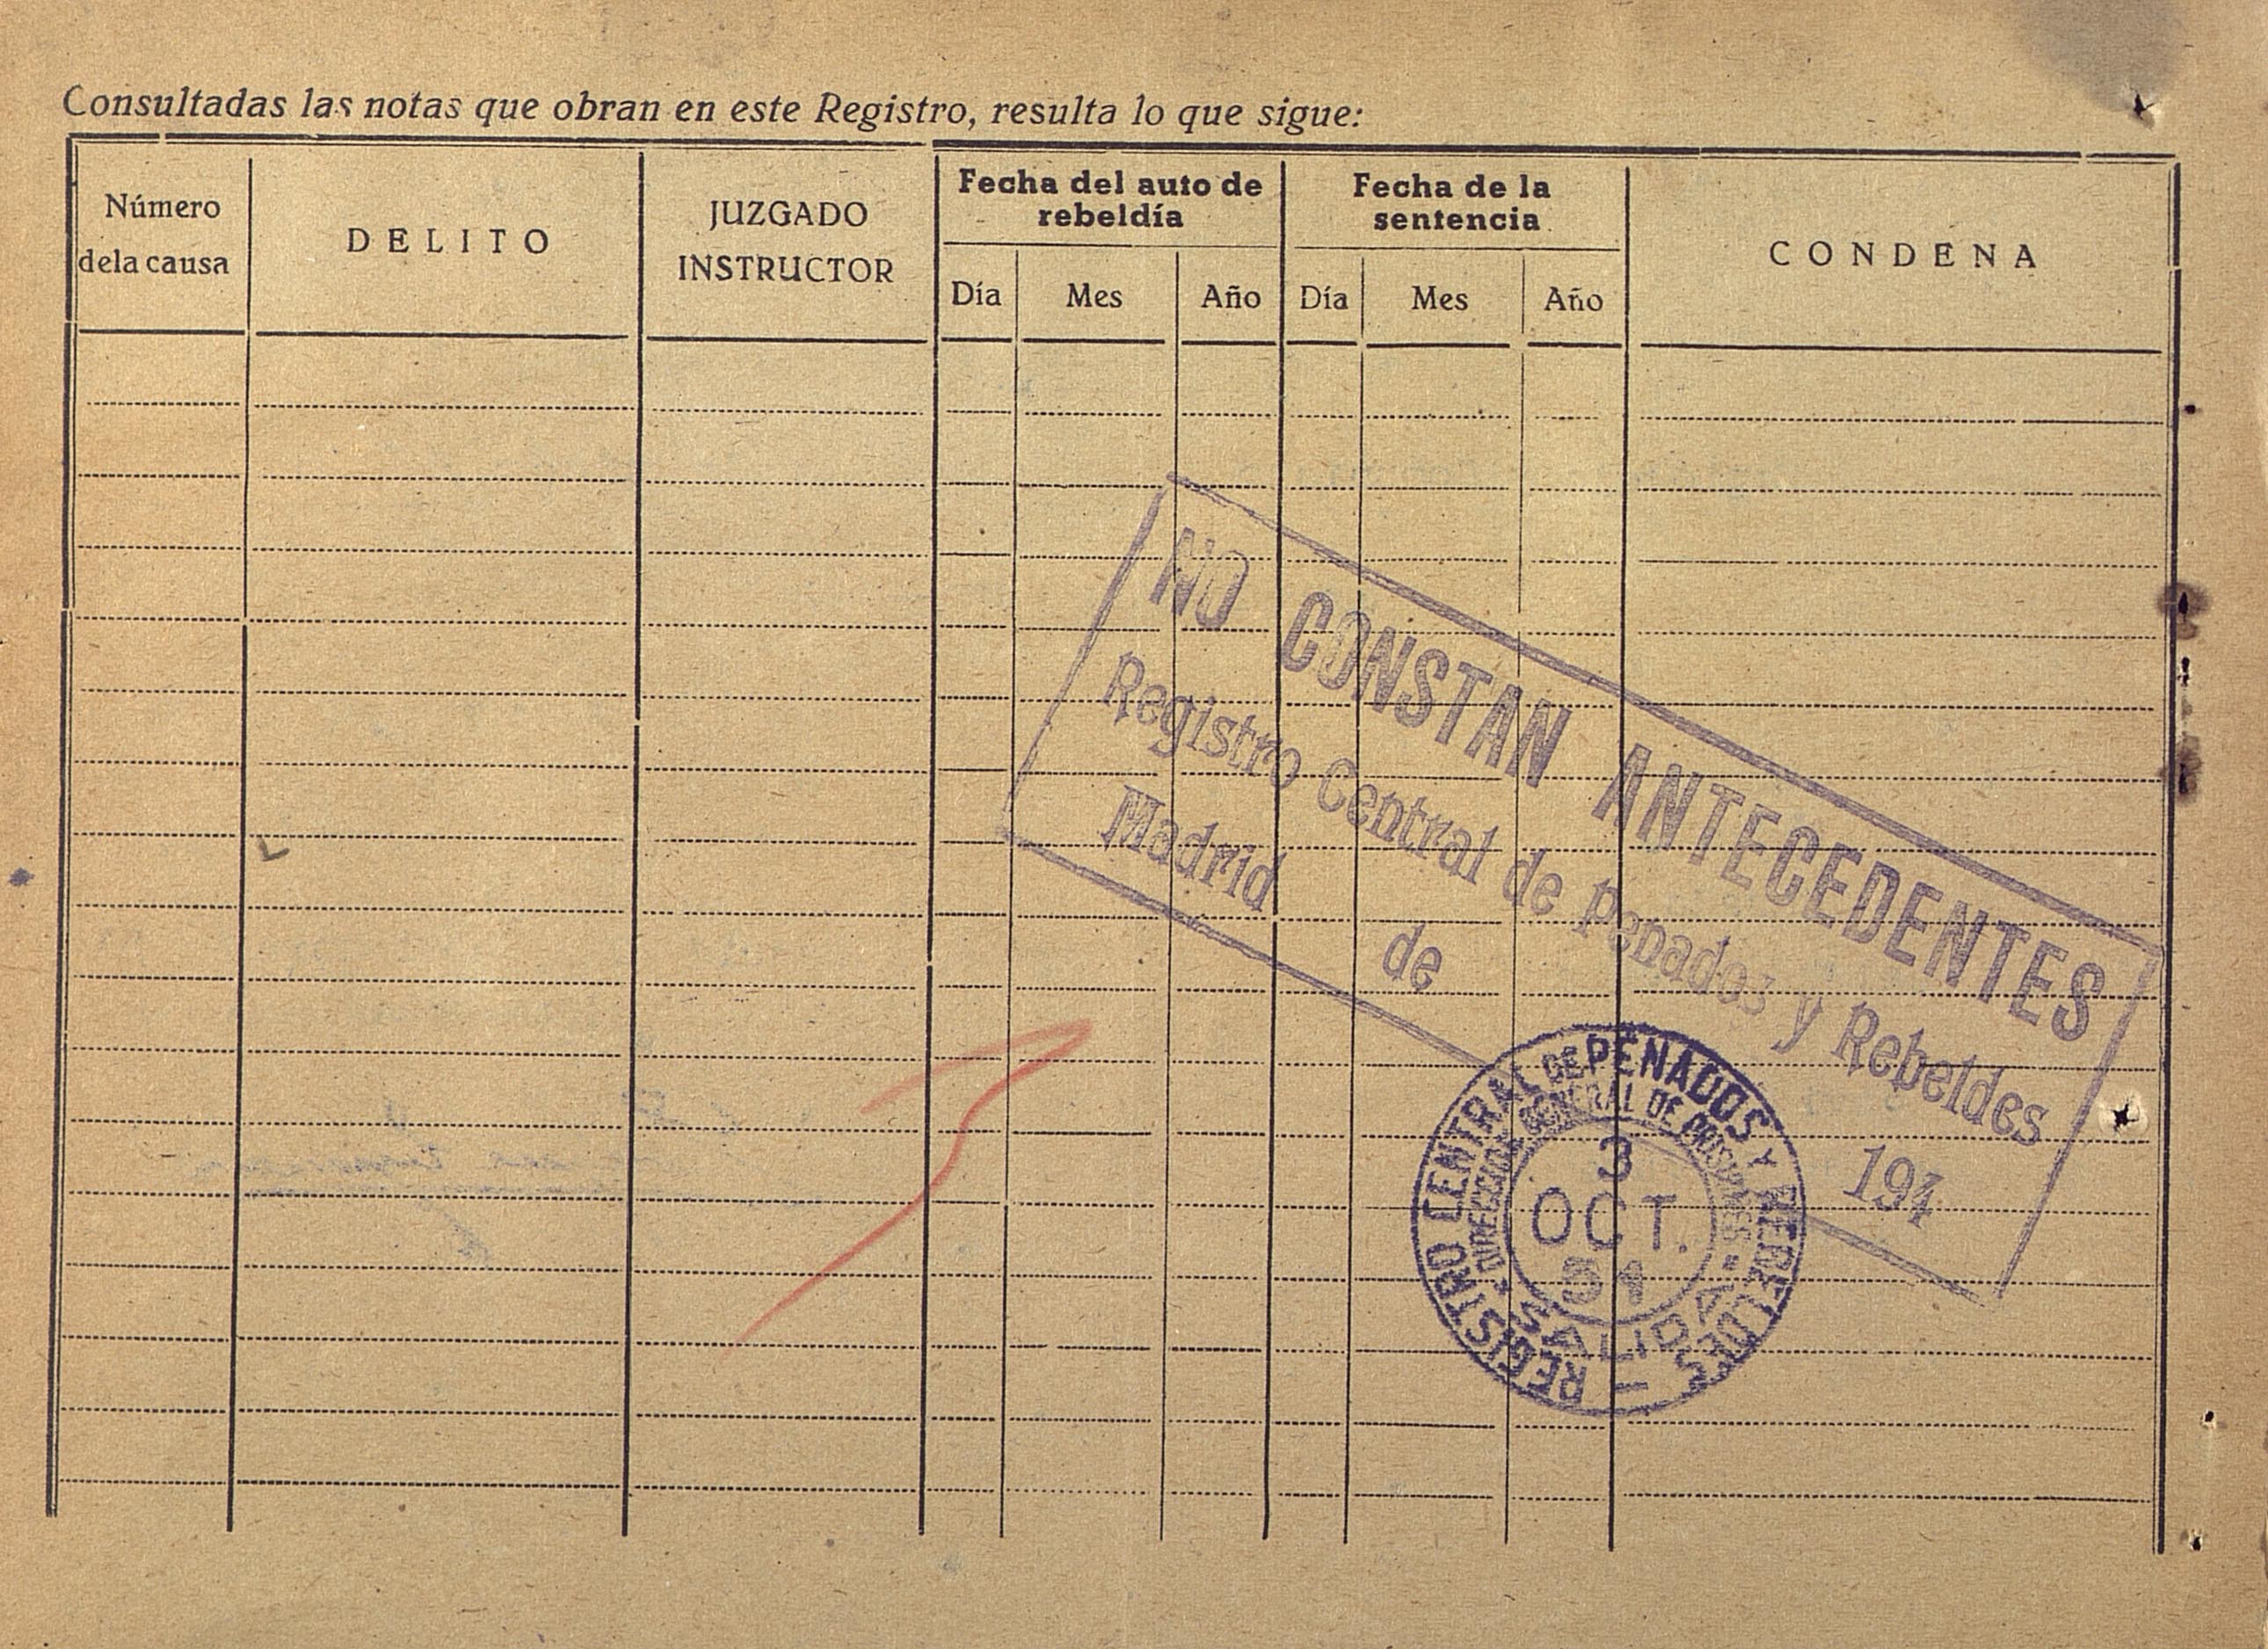 Consultadas las notas que obran en este Registro, resulta lo que sigue:
Número
dela causa
DELITO
JUZGADO
INSTRUCTOR
Fecha del auto de
rebeldía
Día Mes Año
Fecha de la
sentencia
Día Mes Año
CONDENA
NO CONSTAN ANTECEDENTES
Registro Central de Penados y Rebeldes
Madrid de 194
REGISTRO CENTRAL DE PENADOS Y REBELDES
DIRECCION GENERAL DE PRISIONES
3
OCT.
SALIDA